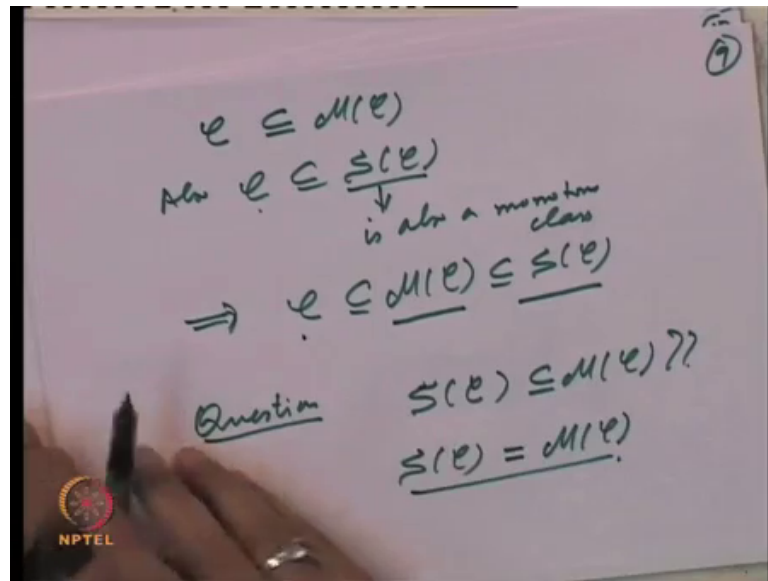 9
𝒞 ⊆ ℳ(𝒞)
Also 𝒞 ⊆ S(𝒞)
↓
is also a monotone
class
⟹ 𝒞 ⊆ ℳ(𝒞) ⊆ S(𝒞)
Question S(𝒞) ⊆ ℳ(𝒞) ??
S(𝒞) = ℳ(𝒞).
NPTEL